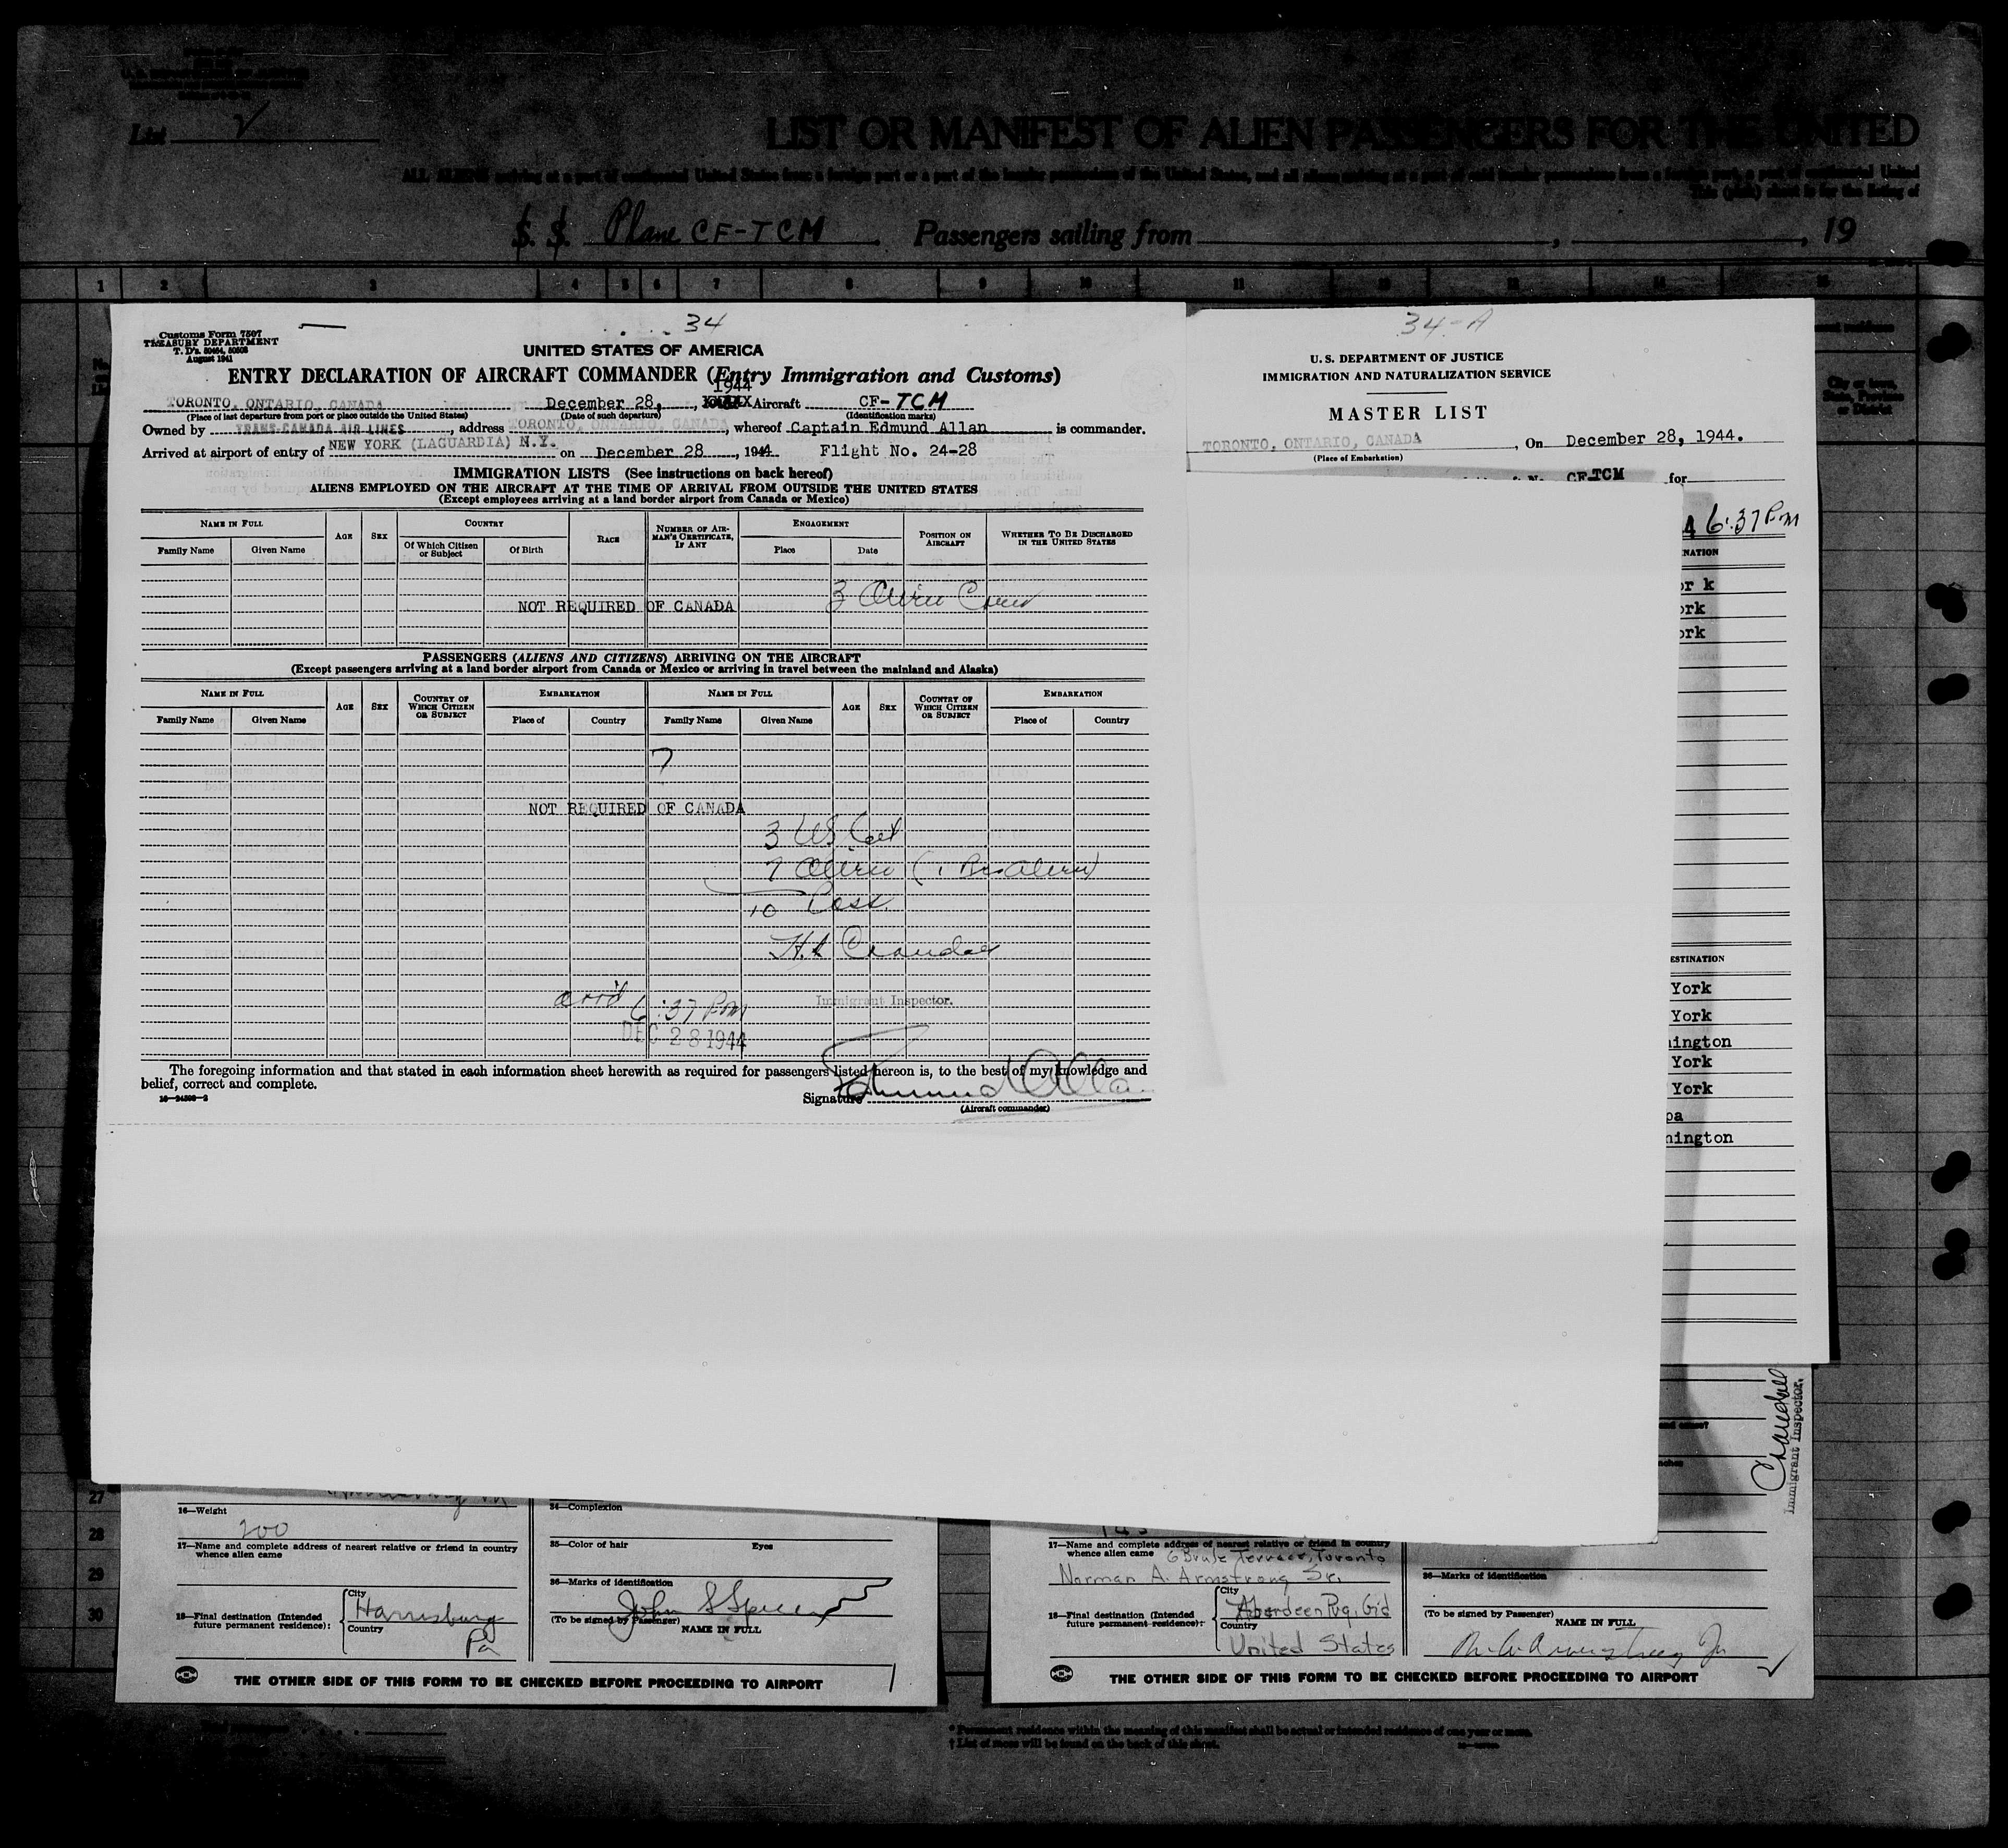 List ✓
LIST OR MANIFEST OF ALIEN PASSENGERS FOR THE UNITED
S. S. Plane CF-TCM Passengers sailing from , , 19
1 2 3 4 5 6 7 8 9 10 11 12 13 14 15
34
Customs Form 7507
TREASURY DEPARTMENT
T. D's. 50464, 50508
August 1941
UNITED STATES OF AMERICA
ENTRY DECLARATION OF AIRCRAFT COMMANDER (Entry Immigration and Customs)
1944
TORONTO, ONTARIO, CANADA December 28, , Aircraft CF-TCM
(Place of last departure from port or place outside the United States) (Date of such departure) (Identification marks)
Owned by TRANS-CANADA AIR LINES, address TORONTO, ONTARIO, CANADA, whereof Captain Edmund Allan is commander.
Arrived at airport of entry of NEW YORK (LAGUARDIA) N.Y. on December 28, 1944. Flight No. 24-28
IMMIGRATION LISTS (See instructions on back hereof)
ALIENS EMPLOYED ON THE AIRCRAFT AT THE TIME OF ARRIVAL FROM OUTSIDE THE UNITED STATES
(Except employees arriving at a land border airport from Canada or Mexico)
NAME IN FULL
Family Name Given Name
AGE
SEX
COUNTRY
Of Which Citizen or Subject Of Birth
RACE
NUMBER OF AIRMAN'S CERTIFICATE, IF ANY
ENGAGEMENT
Place Date
POSITION ON AIRCRAFT
WHETHER TO BE DISCHARGED IN THE UNITED STATES
3 Alien Crew
NOT REQUIRED OF CANADA
PASSENGERS (ALIENS AND CITIZENS) ARRIVING ON THE AIRCRAFT
(Except passengers arriving at a land border airport from Canada or Mexico or arriving in travel between the mainland and Alaska)
NAME IN FULL
Family Name Given Name
AGE
SEX
COUNTRY OF WHICH CITIZEN OR SUBJECT
EMBARKATION
Place of Country
NAME IN FULL
Family Name Given Name
AGE
SEX
COUNTRY OF WHICH CITIZEN OR SUBJECT
EMBARKATION
Place of Country
7
NOT REQUIRED OF CANADA
3 US Cit
7 Alien
10 Pass.
Immigrant Inspector.
arr'd 6:37 PM
DEC 28 1944
The foregoing information and that stated in each information sheet herewith as required for passengers listed hereon is, to the best of my knowledge and
belief, correct and complete.
16-24508-2
Signature Edmund Allan
(Aircraft commander)
34-A
U. S. DEPARTMENT OF JUSTICE
IMMIGRATION AND NATURALIZATION SERVICE
MASTER LIST
TORONTO, ONTARIO, CANADA, On December 28, 1944.
(Place of Embarkation)
CF-TCM for
6:37 PM
NATION
or k
ork
ork
ESTINATION
York
York
ington
York
York
pa
hington
Crandall
Immigrant Inspector.
27
28
29
30
16—Weight
200
17—Name and complete address of nearest relative or friend in country
whence alien came
18—Final destination (Intended
future permanent residence):
City
Harrisburg
Country
Pa
34—Complexion
35—Color of hair Eyes
36—Marks of identification
John S Spicer
(To be signed by Passenger)
NAME IN FULL
THE OTHER SIDE OF THIS FORM TO BE CHECKED BEFORE PROCEEDING TO AIRPORT
17—Name and complete address of nearest relative or friend in country
whence alien came 6 Brule Terrace, Toronto
Norman A. Armstrong Sr.
18—Final destination (Intended
future permanent residence):
City
Aberdeen
Country
United States
36—Marks of identification
(To be signed by Passenger)
NAME IN FULL
Armstrong Jr
THE OTHER SIDE OF THIS FORM TO BE CHECKED BEFORE PROCEEDING TO AIRPORT
* Permanent residence within the meaning of this manifest shall be actual or intended residence of one year or more.
† List of races will be found on the back of this sheet.